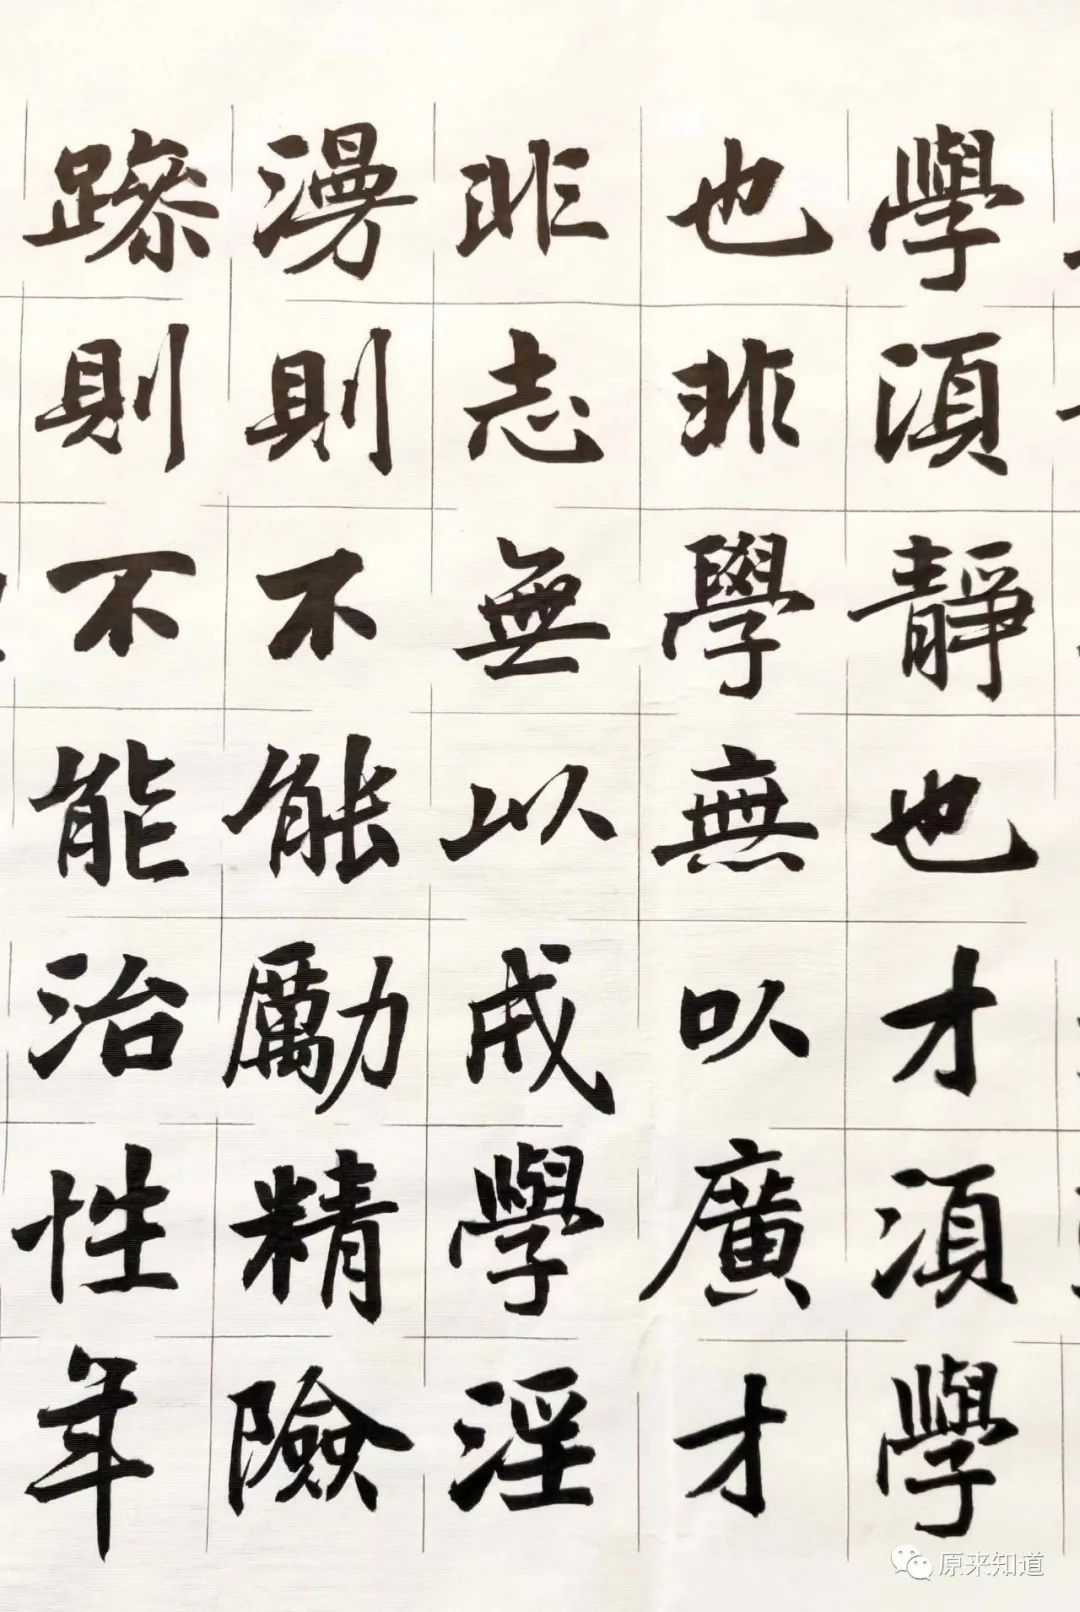 學須靜也才須學
也非學無以廣才
非志無以成學淫
漫則不能勵精險
躁則不能治性年
原来知道